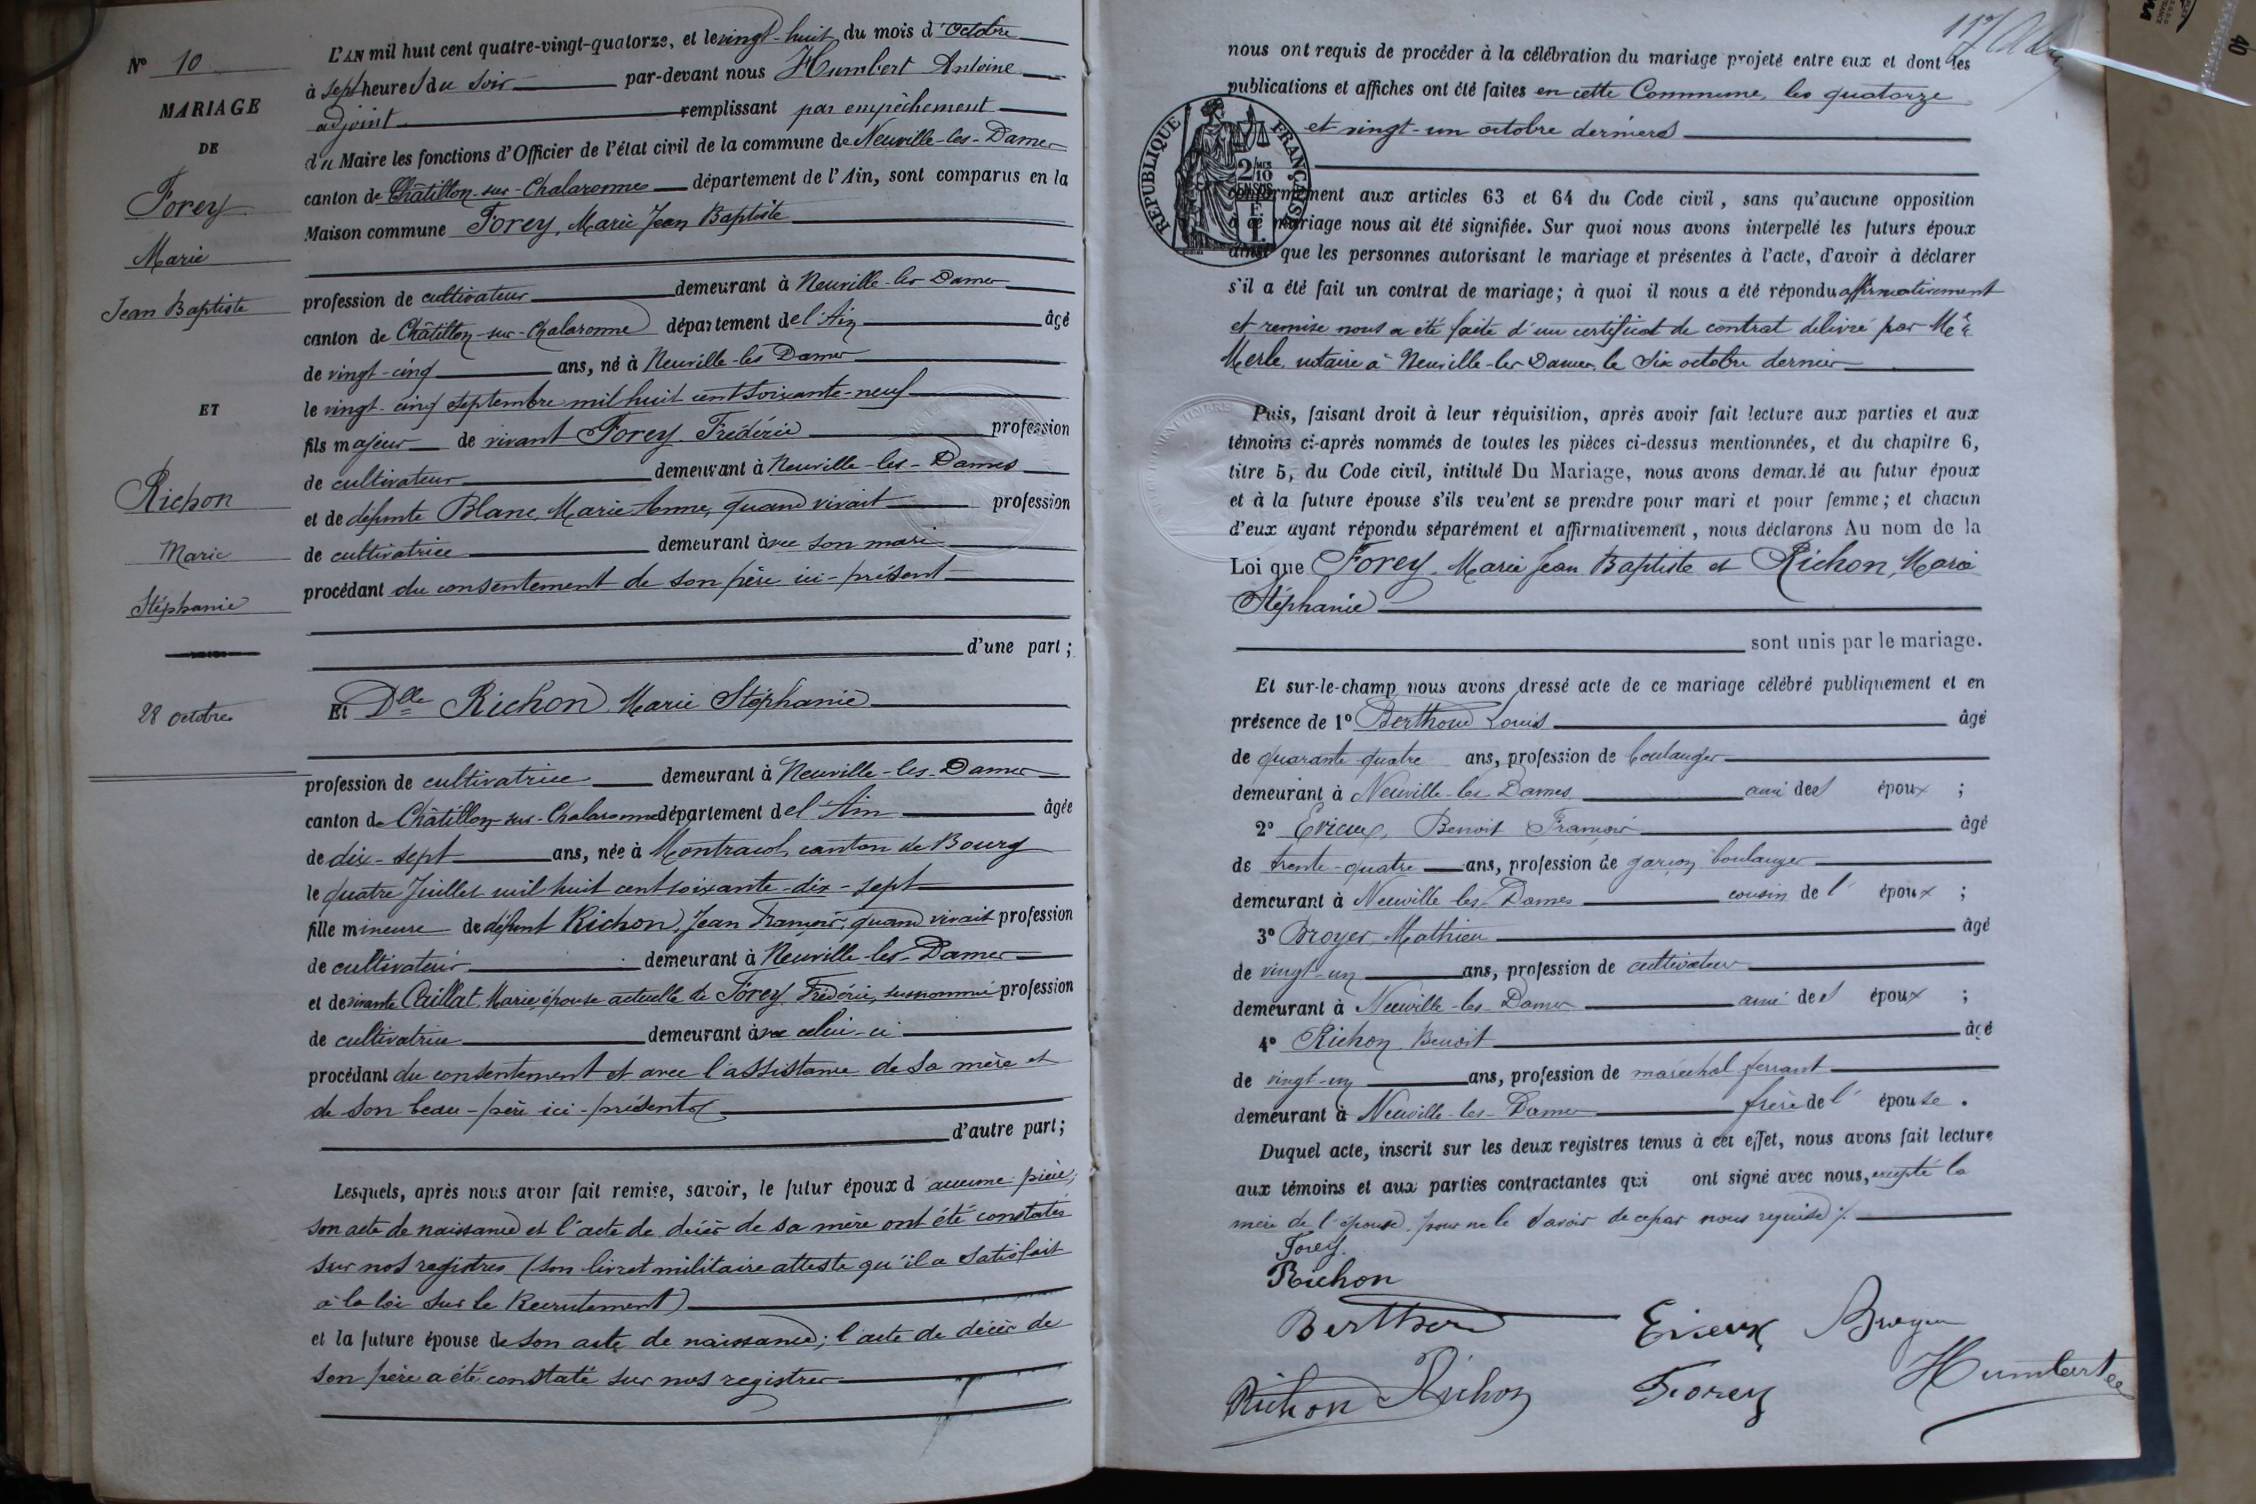 N° 10
MARIAGE
DE
Forey
Marie
Jean Baptiste
ET
Richon
Marie
Stéphanie
28 octobre
L'AN mil huit cent quatre-vingt-quatorze, et le vingt-huit du mois d'Octobre
à sept heures du soir par-devant nous Humbert Antoine
adjoint remplissant par empêchement
du Maire les fonctions d'Officier de l'état civil de la commune de Neuville-les-Dames
canton de Châtillon-sur-Chalaronne département de l'Ain, sont comparus en la
Maison commune Forey, Marie Jean Baptiste
profession de cultivateur demeurant à Neuville-les-Dames
canton de Châtillon-sur-Chalaronne département de l'Ain âgé
de vingt-cinq ans, né à Neuville-les-Dames
le vingt-cinq septembre mil huit cent soixante-neuf
fils majeur de vivant Forey Frédéric profession
de cultivateur demeurant à Neuville-les-Dames
et de défunte Blanc, Marie Anne, quand vivait profession
de cultivatrice demeurant avec son mari
procédant du consentement de son père ici-présent
d'une part;
Et Dlle Richon, Marie Stéphanie
profession de cultivatrice demeurant à Neuville-les-Dames
canton de Châtillon-sur-Chalaronne département de l'Ain âgée
de dix-sept ans, née à Montracol, canton de Bourg
le quatre Juillet mil huit cent soixante-dix-sept
fille mineure de défunt Richon, Jean François, quand vivait profession
de cultivateur demeurant à Neuville-les-Dames
et de vivante Caillat, Marie, épouse actuelle de Forey Frédéric, susnommé profession
de cultivatrice demeurant avec celui-ci
procédant du consentement et avec l'assistance de sa mère et
de son beau-père ici-présents
d'autre part;
Lesquels, après nous avoir fait remise, savoir, le futur époux d'aucune pièce;
son acte de naissance et l'acte de décès de sa mère ont été constatés
sur nos registres (son livret militaire atteste qu'il a satisfait
à la loi sur le Recrutement)
et la future épouse de son acte de naissance; l'acte de décès de
son père a été constaté sur nos registres
nous ont requis de procéder à la célébration du mariage projeté entre eux et dont les
publications et affiches ont été faites en cette Commune, les quatorze
et vingt-un octobre derniers
RÉPUBLIQUE FRANÇAISE
2/10 EN SUS
conformément aux articles 63 et 64 du Code civil, sans qu'aucune opposition
à ce mariage nous ait été signifiée. Sur quoi nous avons interpellé les futurs époux
ainsi que les personnes autorisant le mariage et présentes à l'acte, d'avoir à déclarer
s'il a été fait un contrat de mariage; à quoi il nous a été répondu affirmativement
et remise nous a été faite d'un certificat de contrat délivré par Me
Merle, notaire à Neuville-les-Dames, le six octobre dernier
Puis, faisant droit à leur réquisition, après avoir fait lecture aux parties et aux
témoins ci-après nommés de toutes les pièces ci-dessus mentionnées, et du chapitre 6,
titre 5, du Code civil, intitulé Du Mariage, nous avons demandé au futur époux
et à la future épouse s'ils veulent se prendre pour mari et pour femme; et chacun
d'eux ayant répondu séparément et affirmativement, nous déclarons Au nom de la
Loi que Forey, Marie Jean Baptiste et Richon, Marie
Stéphanie
sont unis par le mariage.
Et sur-le-champ nous avons dressé acte de ce mariage célébré publiquement et en
présence de 1° Berthoud Louis âgé
de quarante-quatre ans, profession de boulanger
demeurant à Neuville-les-Dames ami des époux ;
2° Erieux, Benoit François âgé
de trente-quatre ans, profession de garçon boulanger
demeurant à Neuville-les-Dames cousin de l'époux ;
3° Broyer, Mathieu âgé
de vingt-un ans, profession de cultivateur
demeurant à Neuville-les-Dames ami des époux ;
4° Richon Benoit âgé
de vingt-un ans, profession de maréchal ferrant
demeurant à Neuville-les-Dames frère de l'épouse.
Duquel acte, inscrit sur les deux registres tenus à cet effet, nous avons fait lecture
aux témoins et aux parties contractantes qui ont signé avec nous, excepté la
mère de l'épouse, pour ne le savoir de ce par nous requise
Forey
Richon
Berthoud Erieux Broyer
Richon Richon Forey Humbert